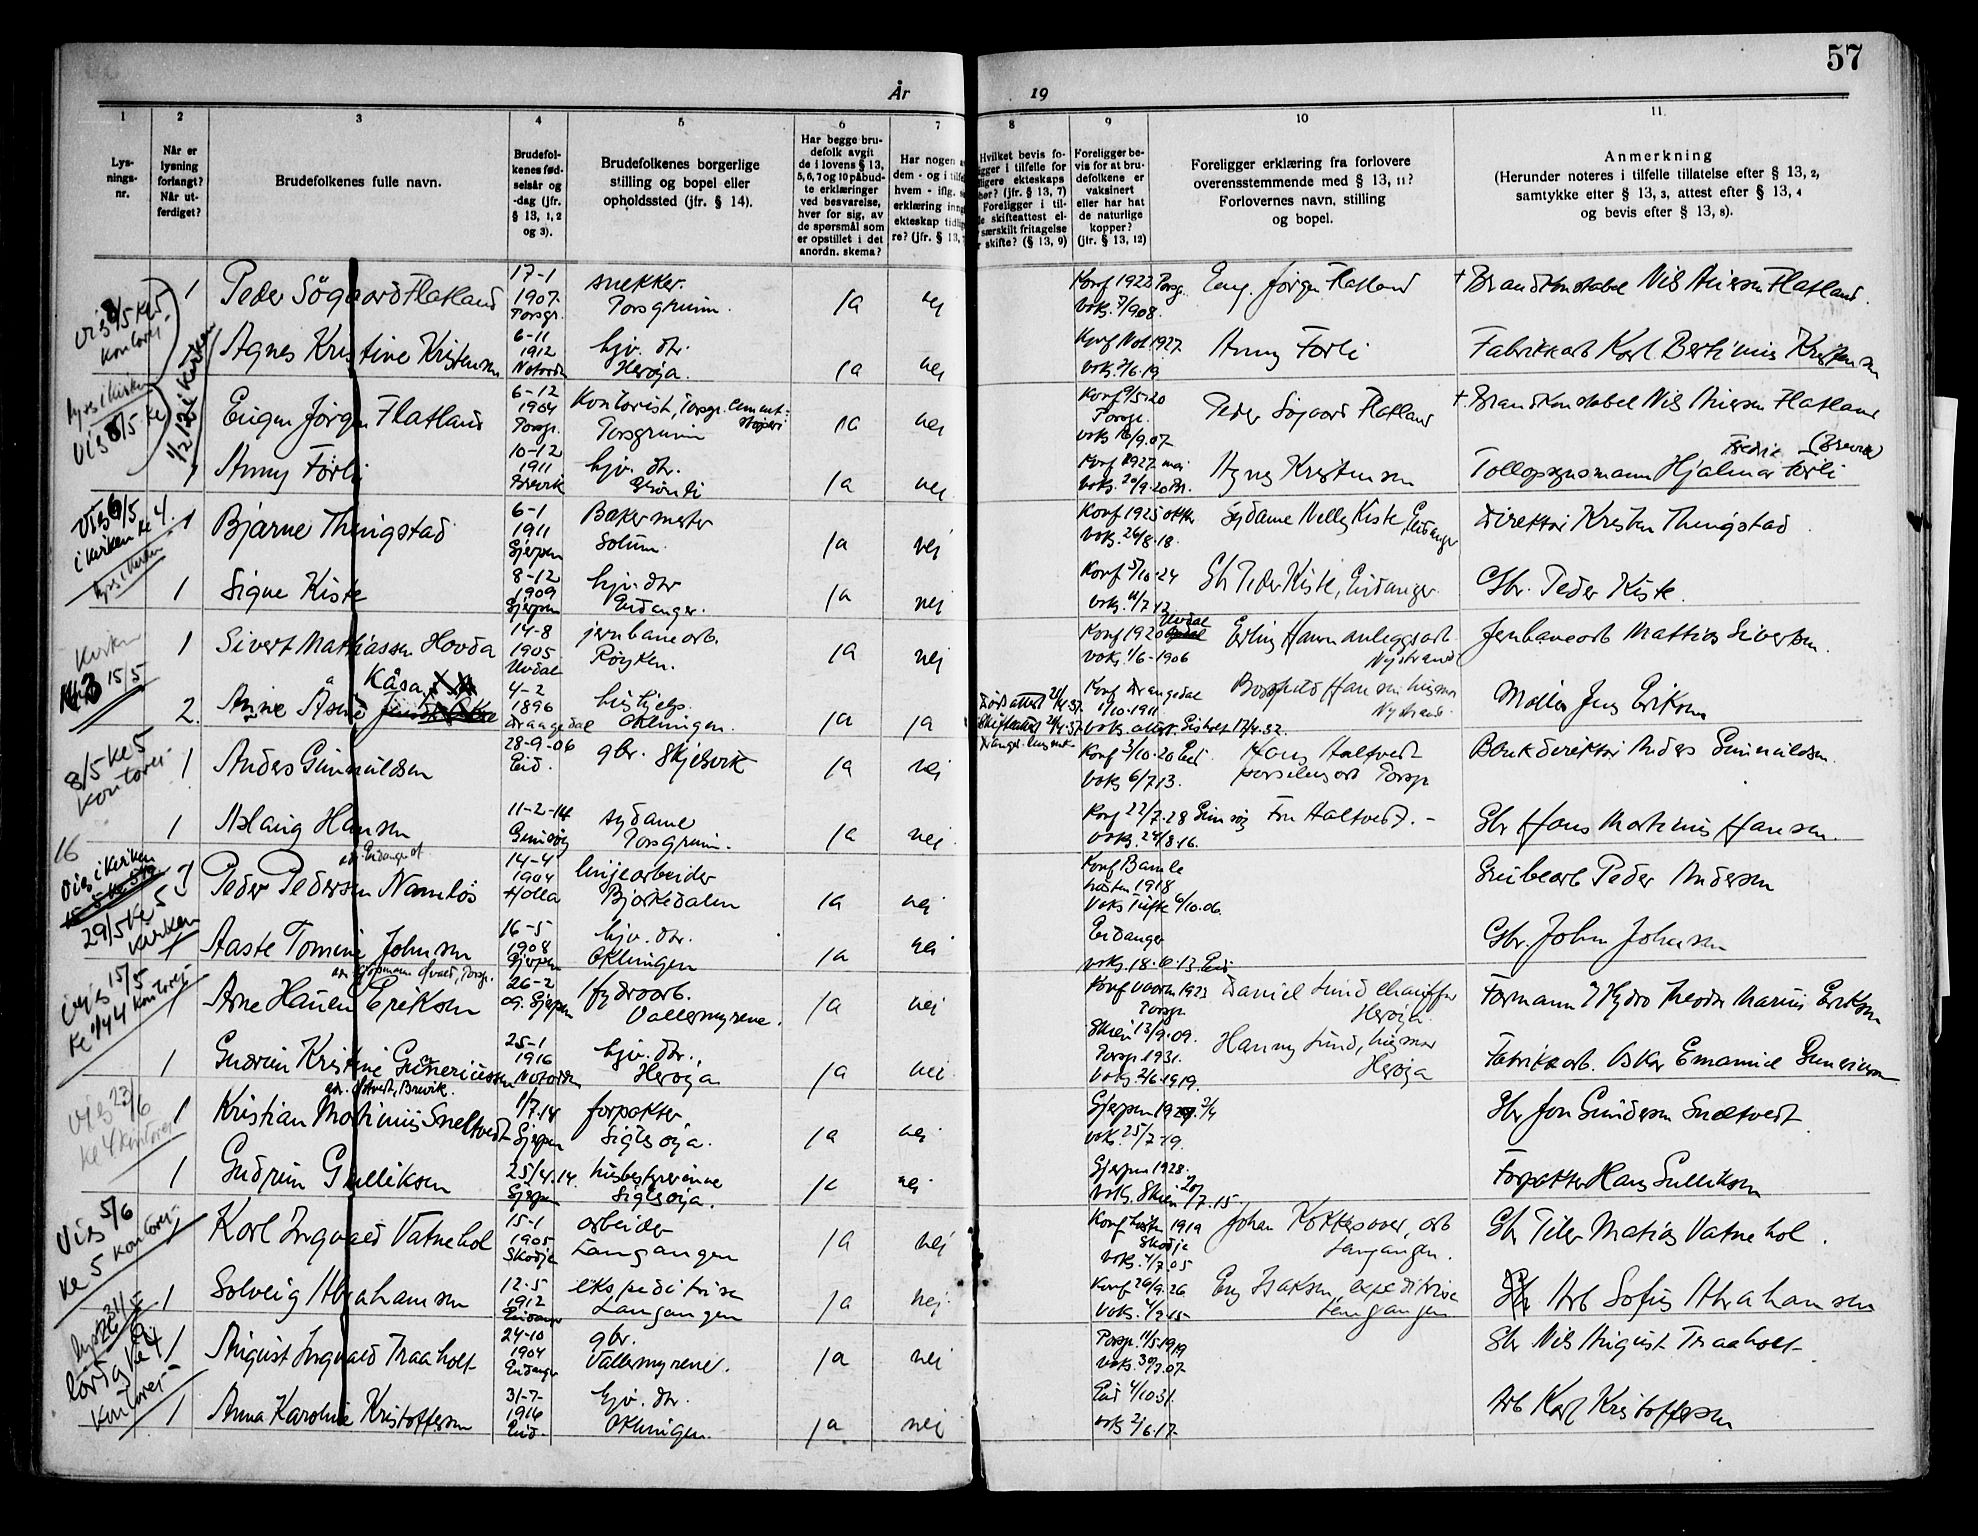 57
År 19
1 2 3 4 5 6 7 8 9 10 11
Lys-
nings-
nr.
Når er
lysning
forlangt?
Når ut-
ferdiget?
Brudefolkenes fulle navn.
Brudefol-
kenes fød-
selsår og
-dag (jfr.
§ 13, 1, 2
og 3).
Brudefolkenes borgerlige
stilling og bopel eller
opholdssted (jfr. § 14).
Har begge bru-
defolk avgit
de i lovens § 13,
5, 6, 7 og 10 påbud-
te erklæringer
ved besvarelse,
hver for sig, av
de spørsmål som
er opstillet i det
anordn. skema?
Har nogen a
dem - og i tilfe
hvem - iflg. s
erklæring inng
ekteskap tidlig
re? (jfr. § 13, 7
Hvilket bevis fo-
igger i tilfelle for
dligere ekteskaps
her? (jfr. § 13, 7)
Foreligger i til-
le skifteattest el-
særskilt fritagelse
r skifte? (§ 13, 9)
Foreligger be-
vis for at bru-
defolkene er
vaksinert
eller har hat
de naturlige
kopper?
(jfr. § 13, 12)
Foreligger erklæring fra forlovere
overensstemmende med § 13, 11?
Forlovernes navn, stilling
og bopel.
Anmerkning
(Herunder noteres i tilfelle tillatelse efter § 13, 2,
samtykke efter § 13, 3, attest efter § 13, 4
og bevis efter § 13, 8).
1 Peder Søgaard Flatland 17-1 1907 Porsgr. snekker. Porsgrunn. ja nej Konf 1922 Porsg. vaks. 7/908. Eug. Jørgen Flatland + Brandkonstabel Nils Flatland.
Agnes Kristine Kristensen 6-11 1912 Notodden hjv. dtr. Herøja. ja nej 1927 vaks. 19 Anny Førli Fabrikkarb Karl Bertinius Kristensen
Eugen Jørgen Flatland 6-12 1904 Porsgr. Kontorist, Porsgr. Cement- støperi Porsgrunn ja nej Porsgr. vaks 16/9.07 Peder Søgaard Flatland + Brandkonstabel Nils Flatland
1/2 12 i kirken
1 Anny Førli 10-12 1911 Brevik hjv. dtr. ja nej Konf 1927 mai vaks. 20/9.20 Agnes Kristensen Tollopsynsmann Hjalmar Førli (Brevik)
Vies 6/5 i kirken ke 4. lyses i kirken
1 Bjarne Thingstad 6-1 1911 Gjerpen Bakermester Solum. ja nej Konf 1925 okto vaks. 26/8.18. Sydame Nelly Kiste, Eidanger direktør Kristen Thingstad
1 Signe Kiste 8-12 1909 Gjerpen hjv. dtr Eidanger. ja nej Konf 5/10.24 vaks. Gbr Peder Kiste, Eidanger. Gbr. Peder Kiste.
Kirken 15/5
1 Sivert Mathiassen Hovda 14-8 1905 Uvdal jernbanearb. Røyken. ja nej Konf 1920 Uvdal vaks. 1/6-1906 Erling Hansen anleggsarb Nystrand Jernbanearb Mattias Sivertsen.
2. Anne Åsne Kåsa 4-2 1896 drangedal hushjelp. Oklungen. ja ja Konf drangedal 1/10.1911. vaks. attest Nystrand Møller Jens Eriksen
8/5 ke 5 kontoret
1 Anders Gunnuldsen 28-9-06 Eid. gbr. Skjelsvik ja nej Konf 3/10.20 Eid vaks 6/7 13. Hans Haltvedt porselensarb Porsgr Bankdirektør Anders Gunnuldsen.
1 Aslaug Hansen 11-2-14 Gimsøy sydame Porsgrunn. ja nej Konf 22/7.28 Gimsøy vaks. 24/8.16. Fru Haltvedt. - Gbr Hans Martinus Hansen.
16 Vies i kirken 29/5 ke 5 kirken
Peder Pedersen Naneløs 14-4 1904 Holla linjearbeider Bjorkedalen ja nej Konf Bamle høsten 1918 6/10.06. Grubearb Peder Andersen
1 Aaste Tomine Johnsen 16-5 1908 Gjerpen hjv. dtr. Oklungen ja nej Eidanger vaks. 18.6.13 Eid Gbr. John Johnsen
15/5 ke 4 kontoret
1 Arne Hauen Eriksen 26-2 09. Gjerpen Hydroarb. Vallermyrene. ja nej Konf vaaren 1923 Porsgr Skien 13/9.09. Daniel Lund chauffør Herøja Formann v/ Hydro Theodor Marius Eriksen
1 Gudrun Kristine Gunneriussen 25-1 1916 Notodden hjv. dtr., Herøja ja nej Porsgr 1931. vaks. 2/6.1919. Hanny Lund, husmor Herøja Fabrikkarb. Oskar Emanuel Gunneriussen
Vies 23/6 ke 4 kontoret
1 Kristian Martinius Sneltvedt 1/7.14 Gjerpen forpakter Siglesøja. ja nej Gjerpen vaks. 25/7.19. Gbr Jon Gundersen Sneltvedt
1 Gudrun Gulliksen 25/4.14. Gjerpen husbestyrerinne Siglesøja. ja nej Gjerpen 1928. vaks. Skien 7.15. Forpakter Hans Gulliksen
Vies 5/6 ke 5 kontoret
1 Karl Ingvald Vatnehol 15-1 1905 Skodje arbeider Langangen ja nej Konf høsten 1919 Skodje vaks. 4/7.05 Johan Kokkesvær, arb Langangen. Gbr Peter Matias Vatnehol.
1 Solveig Abrahamsen 12-5 1912 Eidanger ekspeditrise Langangen ja nej Konf 26/9.26 vaks. Eng Isaksen, expeditrise Langangen Arb Sofus Abrahamsen
lørdag ke 4 kontoret
1 August Ingvald Traaholt 24-10 1904 Eidanger gbr. Vallermyrene. ja nej Porsgr. 11/5.1919 vaks. Gbr Nils August Traaholt
1 Anna Karoline Kristoffersen 31-7- 1916 Eid. hjv. dtr. Oklungen. ja nej Eid 4/10.31. vaks 2/6.17. Arb Karl Kristoffersen